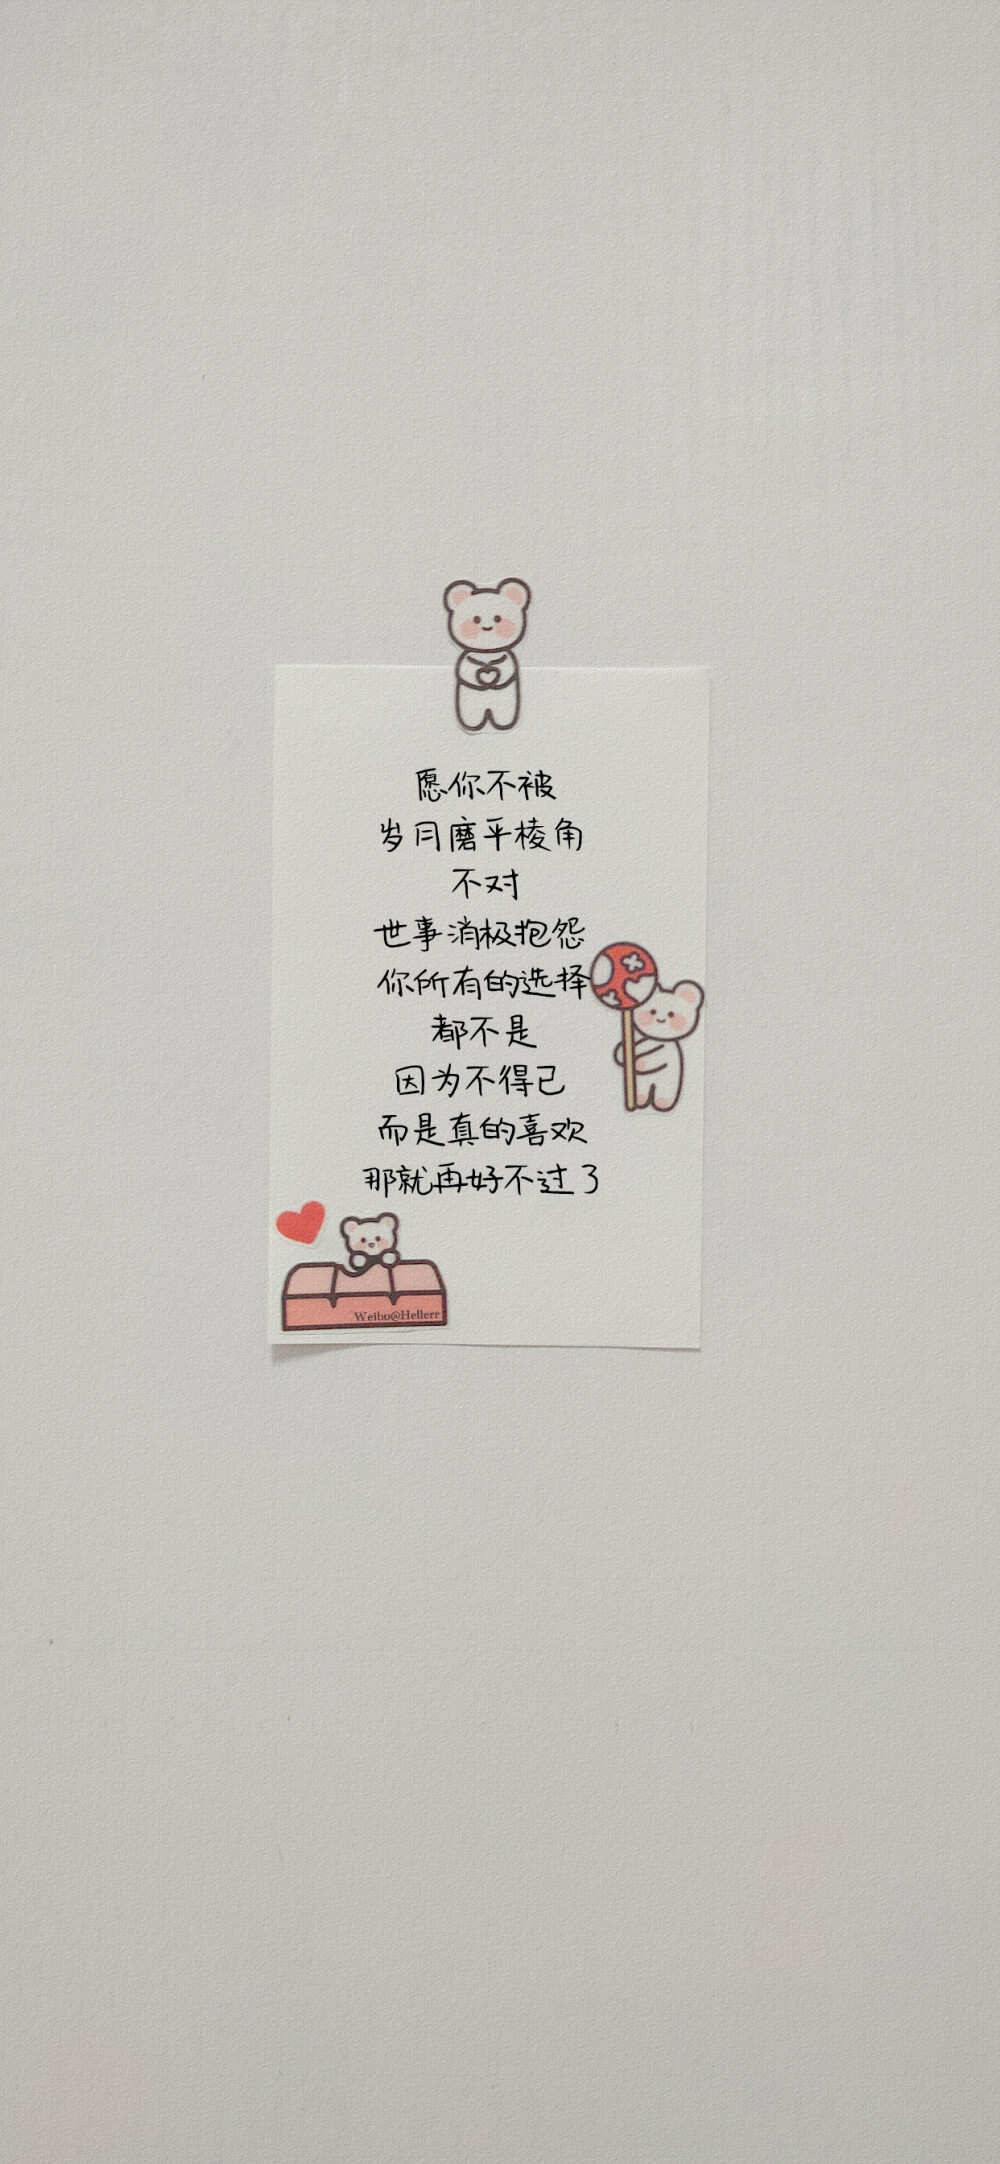 愿你不被
岁月磨平棱角
不对
世事消极抱怨
你所有的选择
都不是
因为不得已
而是真的喜欢
那就再好不过了
Weibo@Hellerr